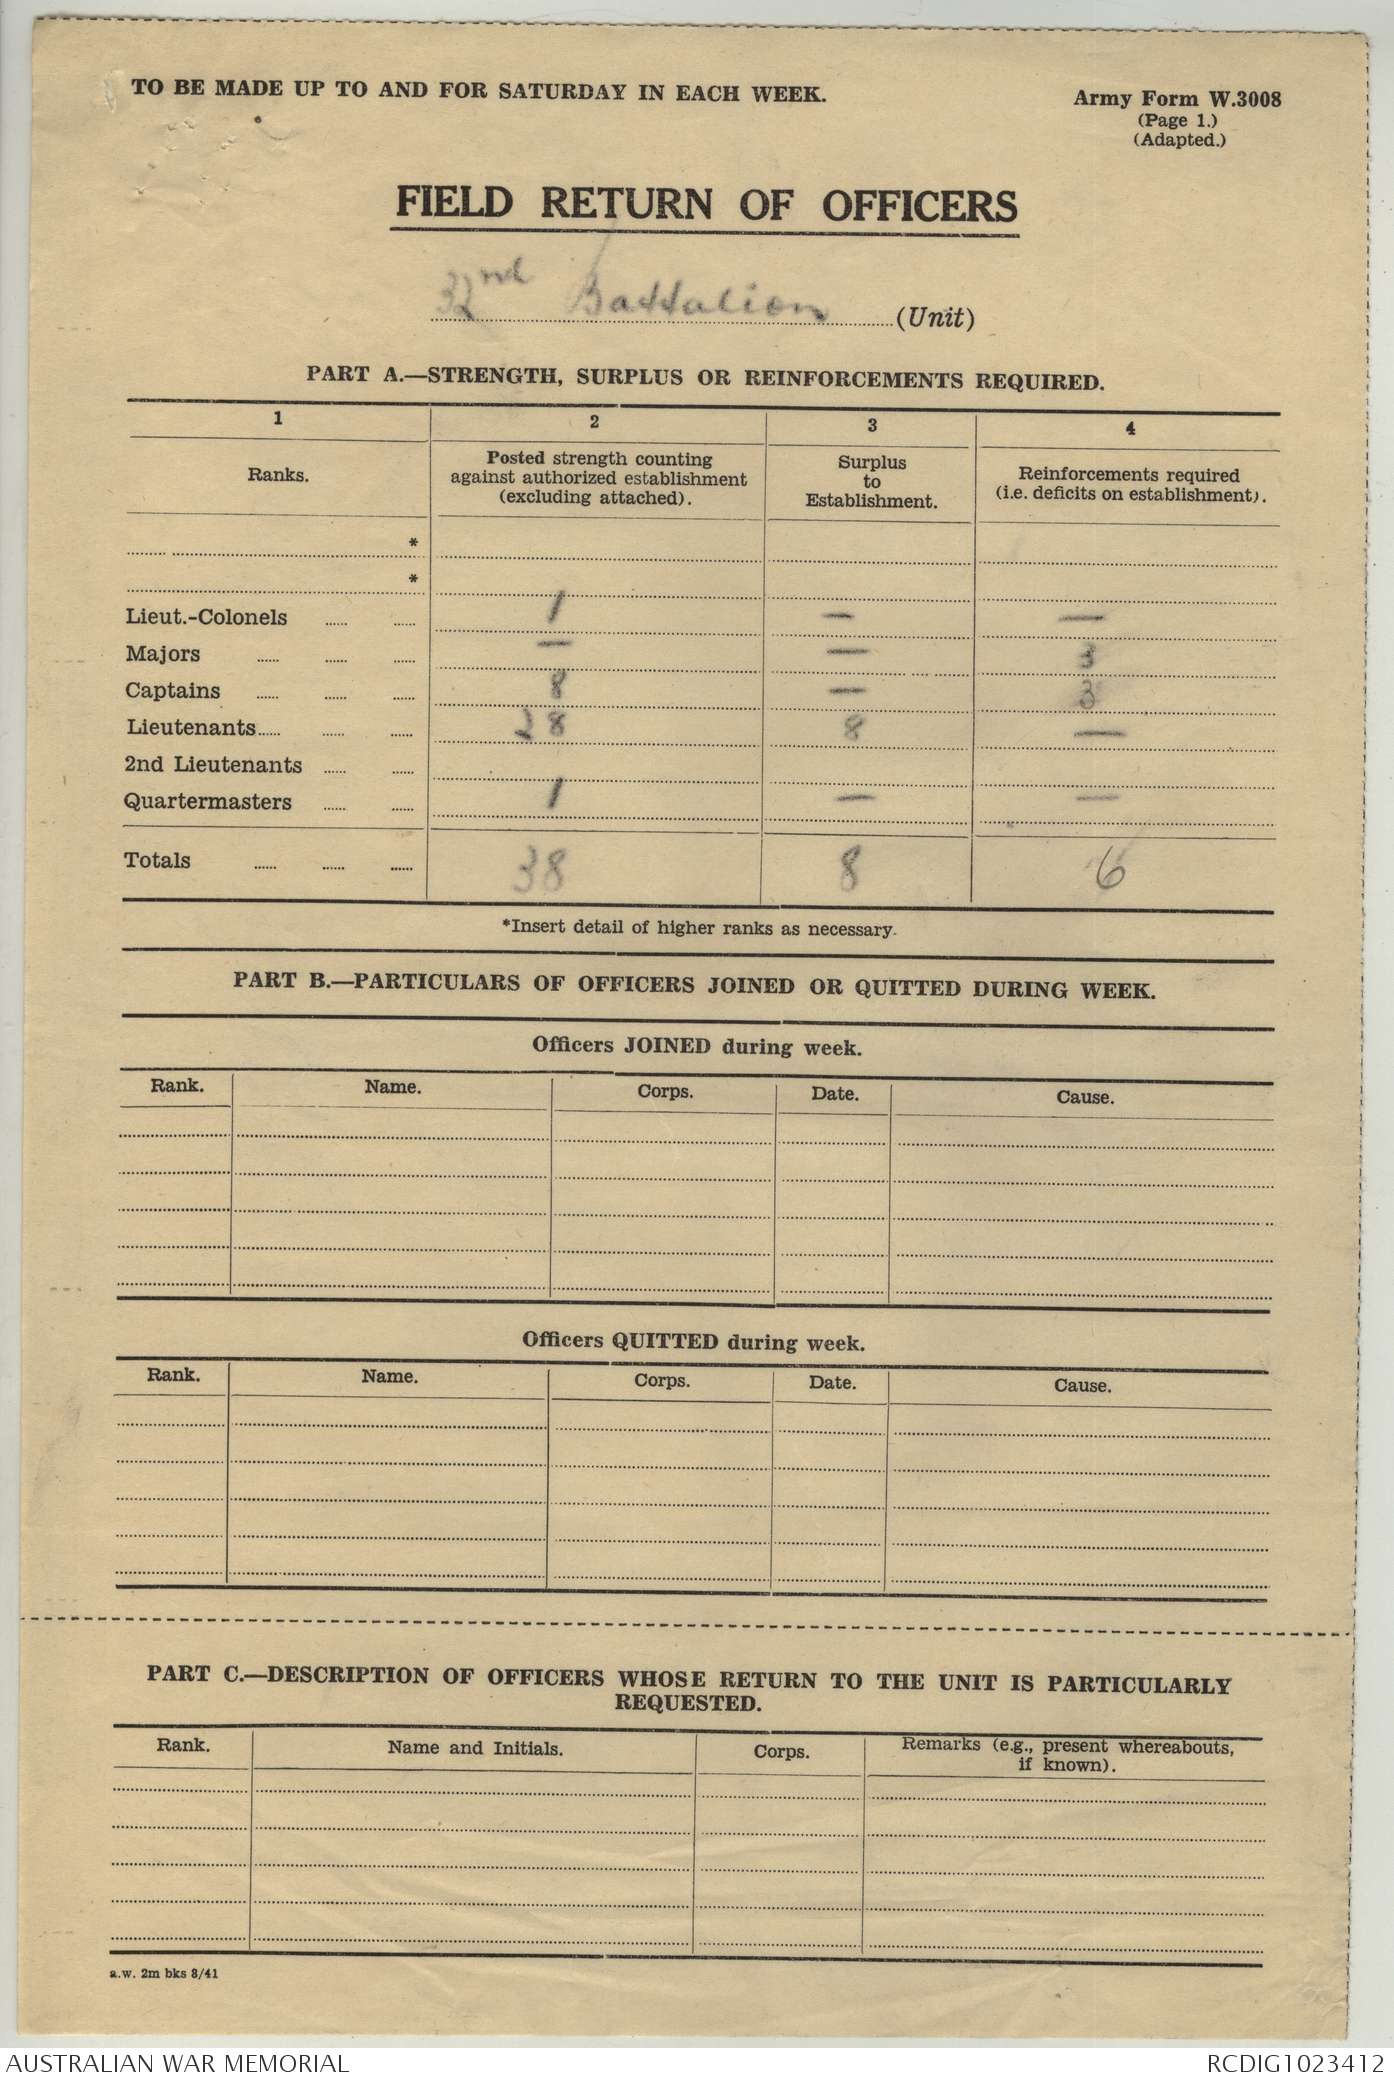 TO BE MADE UP TO AND FOR SATURDAY IN EACH WEEK.
Army Form W.3008
(Page 1.)
(Adapted.)
FIELD RETURN OF OFFICERS
32nd Battalion (Unit)
PART A.—STRENGTH, SURPLUS OR REINFORCEMENTS REQUIRED.
1 2 3 4
Ranks. Posted strength counting against authorized establishment (excluding attached). Surplus to Establishment. Reinforcements required (i.e. deficits on establishment).
*
*
Lieut.-Colonels ...... ...... 1 — —
Majors ...... ...... ...... — — 3
Captains ...... ...... ...... 8 — 3
Lieutenants...... ...... ...... 28 8 —
2nd Lieutenants ...... ......
Quartermasters ...... ...... 1 — —
Totals ...... ...... ...... 38 8 6
*Insert detail of higher ranks as necessary.
PART B.—PARTICULARS OF OFFICERS JOINED OR QUITTED DURING WEEK.
Officers JOINED during week.
Rank. Name. Corps. Date. Cause.
Officers QUITTED during week.
Rank. Name. Corps. Date. Cause.
PART C.—DESCRIPTION OF OFFICERS WHOSE RETURN TO THE UNIT IS PARTICULARLY
REQUESTED.
Rank. Name and Initials. Corps. Remarks (e.g., present whereabouts, if known).
a.w. 2m bks 8/41
AUSTRALIAN WAR MEMORIAL RCDIG1023412